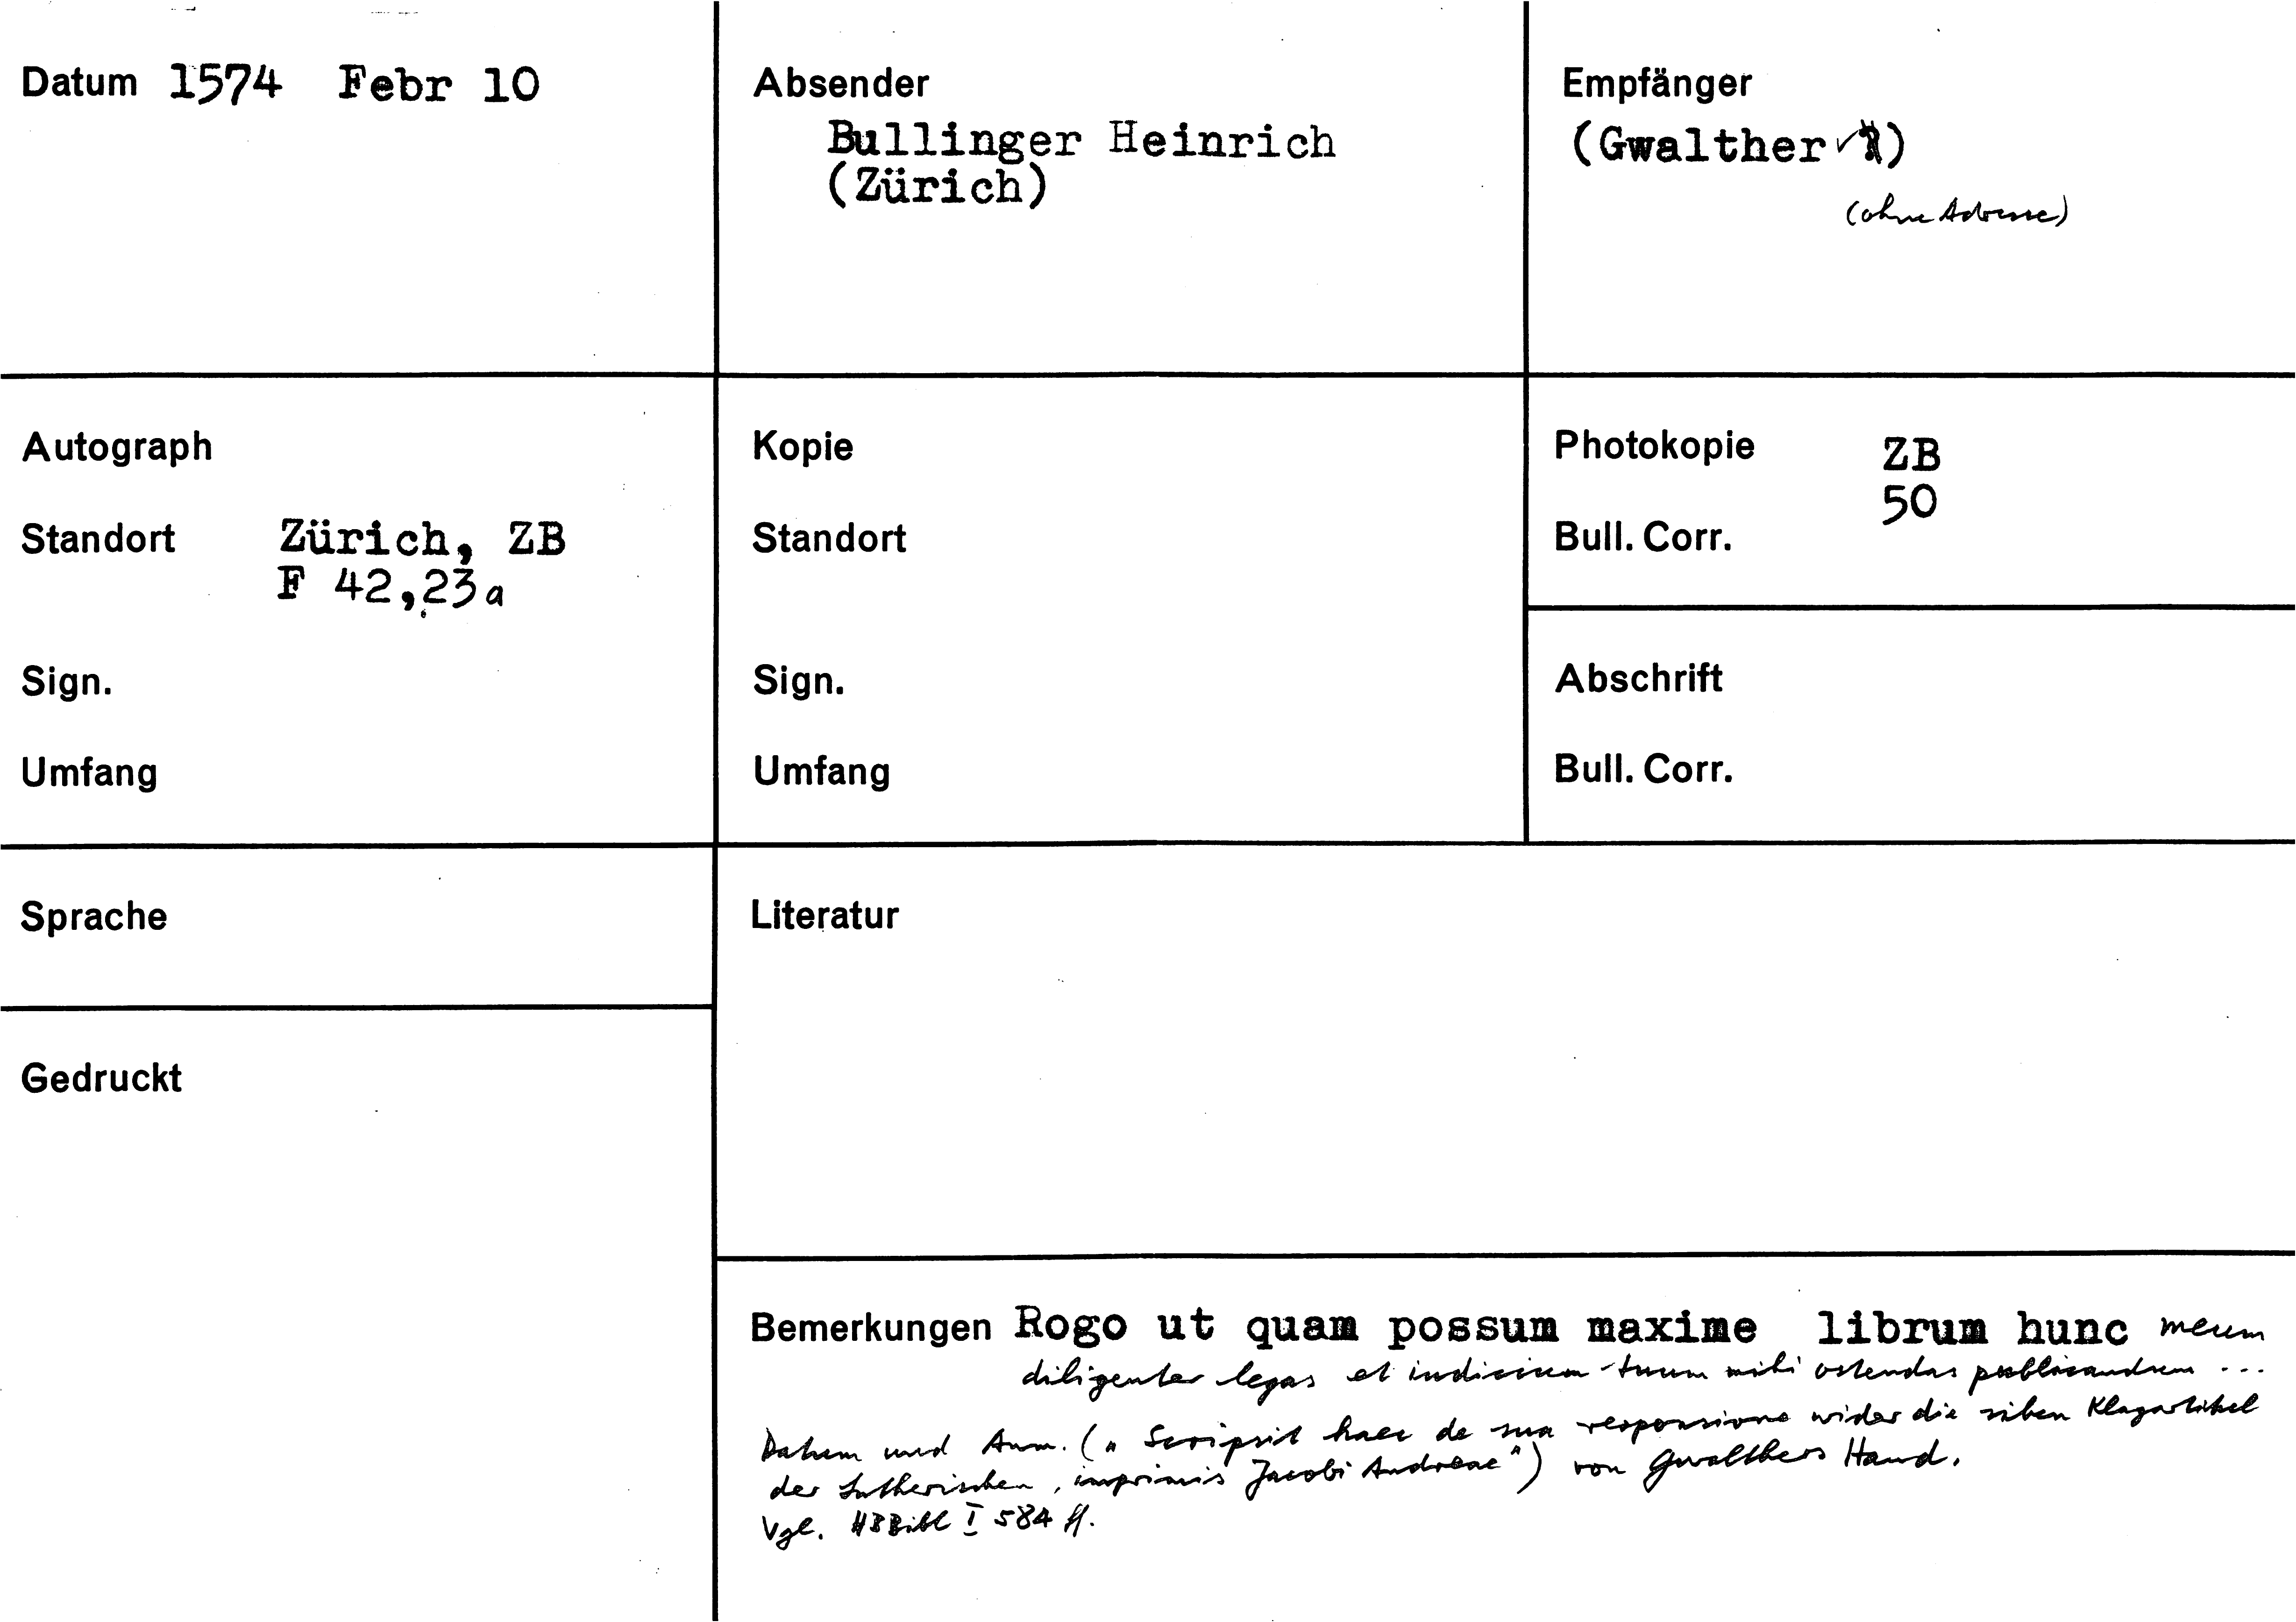 Datum 1574 Febr 10
Absender
Bullinger Heinrich
(Zürich)
Empfänger
(Gwalther)
(ohne Adresse)
Autograph
Standort Zürich, ZB
F 42,23a
Sign.
Umfang
Kopie
Standort
Sign.
Umfang
Photokopie ZB
50
Bull. Corr.
Abschrift
Bull. Corr.
Sprache
Gedruckt
Literatur
Bemerkungen Rogo ut quam possum maxime librum hunc meum
diligenter legas et iudicium tuum mihi ostendas publicandum ...
Datum und Anm. („Scripsit haec de sua responsione wider die siben Klagartikel
der Lutherischen, imprimis Jacobi Andreae") von Gwalthers Hand.
Vgl. HBBibl I 584 ff.